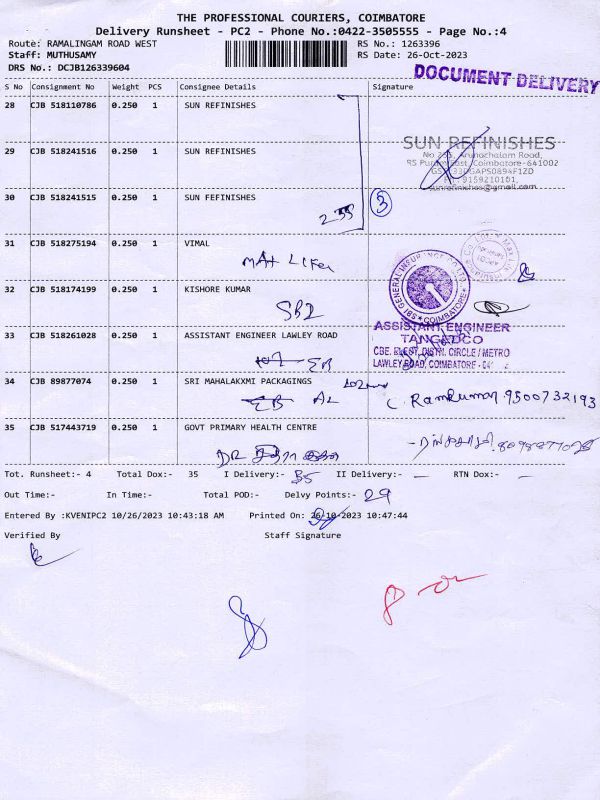 THE PROFESSIONAL COURIERS, COIMBATORE
Delivery Runsheet - PC2 - Phone No.:0422-3505555 - Page No.:4
Route: RAMALINGAM ROAD WEST RS No.: 1263396
Staff: MUTHUSAMY RS Date: 26-Oct-2023
DRS No.: DCJB126339604
DOCUMENT DELIVERY
S No Consignment No Weight PCS Consignee Details Signature
28 CJB 518110786 0.250 1 SUN REFINISHES
SUN REFINISHES
29 CJB 518241516 0.250 1 SUN REFINISHES
Arunachalam Road,
Coimbatore-641002
sunrefinishes@gmail.com
30 CJB 518241515 0.250 1 SUN FEFINISHES
3
31 CJB 518275194 0.250 1 VIMAL
Max Lifer
32 CJB 518174199 0.250 1 KISHORE KUMAR
GENERAL INSURANCE
COIMBATORE
33 CJB 518261028 0.250 1 ASSISTANT ENGINEER LAWLEY ROAD
ASSISTANT ENGINEER
TANGEDCO
CBE. DISTN. CIRCLE / METRO
LAWLEY ROAD, COIMBATORE
EB
34 CJB 89877074 0.250 1 SRI MAHALAKXMI PACKAGINGS
EB AL
C. Ramkumar. 9500732193
35 CJB 517443719 0.250 1 GOVT PRIMARY HEALTH CENTRE
DR
Tot. Runsheet:- 4 Total Dox:- 35 I Delivery:- 35 II Delivery:- — RTN Dox:- —
Out Time:- In Time:- Total POD:- Delvy Points:- 29
Entered By :KVENIPC2 10/26/2023 10:43:18 AM Printed On: 26-10-2023 10:47:44
Verified By Staff Signature